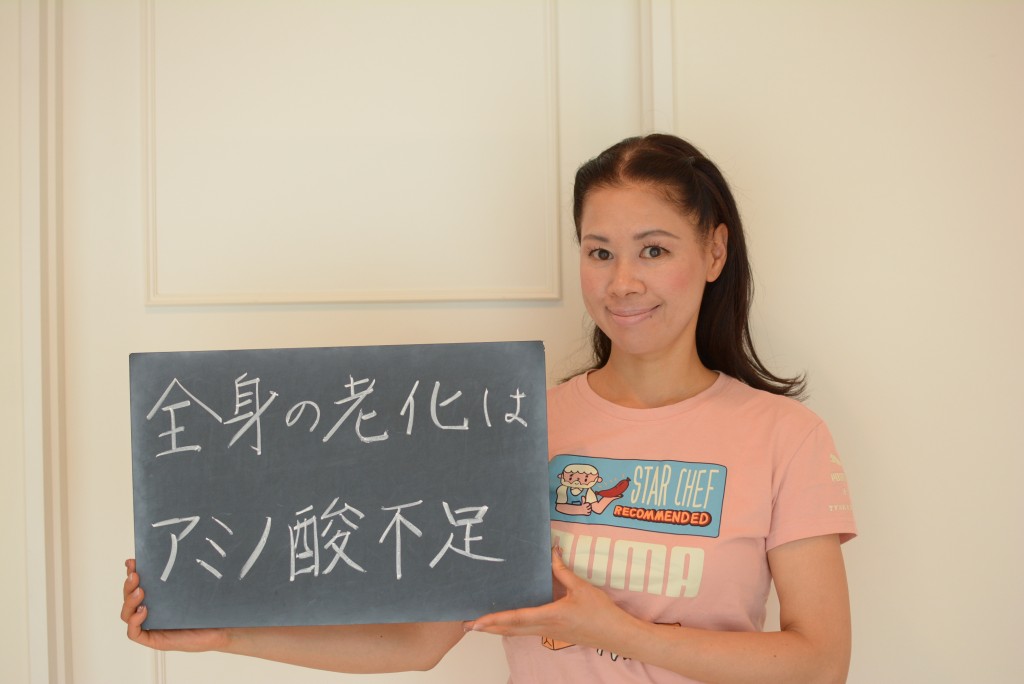 全身の老化は
アミノ酸不足
STAR CHEF
RECOMMENDED
PUMA